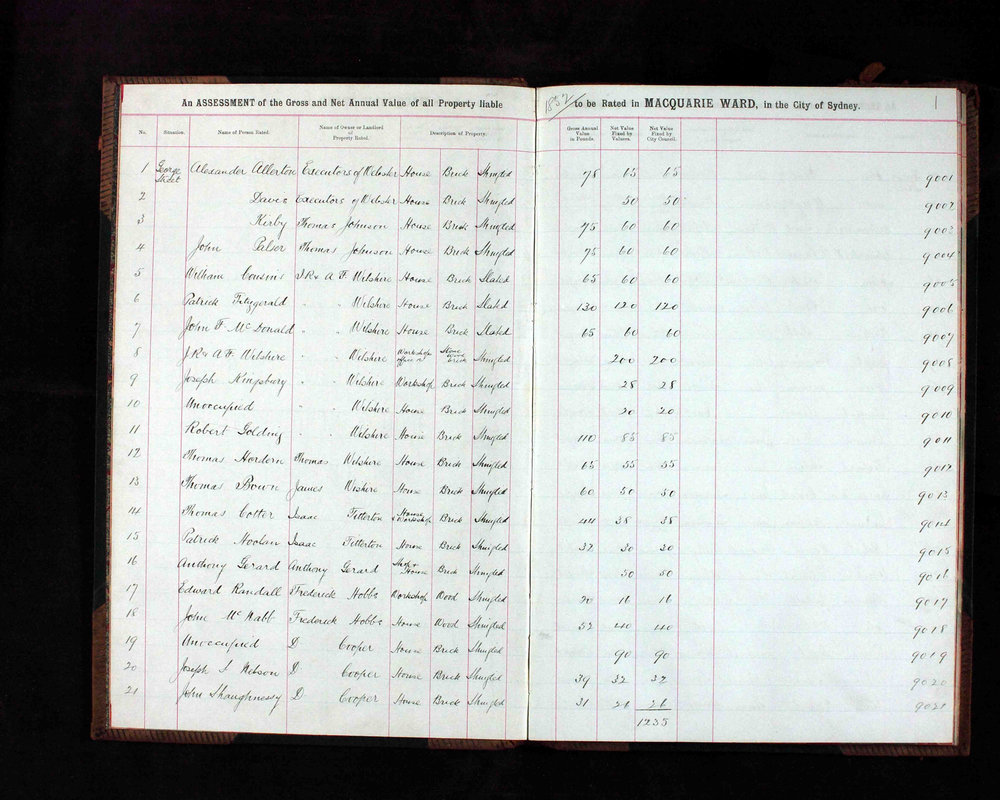 An ASSESSMENT of the Gross and Net Annual Value of all Property liable to be Rated in MACQUARIE WARD, in the City of Sydney.
1852
1
No. Situation. Name of Person Rated. Name of Owner or Landlord of Property Rated. Description of Property. Gross Annual Value in Pounds. Net Value Fixed by Valuers. Net Value Fixed by City Council.
1 George Street Alexander Allerton Executors of Webster House Brick Shingled 78 65 65 9001
2 Davis Executors of Webster House Brick Shingled 50 50 9002
3 Kirby Thomas Johnson House Brick Shingled 75 60 60 9003
4 John Palser Thomas Johnson House Brick Shingled 75 60 60 9004
5 William Cousins J.R & A F. Wilshire House Brick Slated 65 60 60 9005
6 Patrick Fitzgerald " " Wilshire House Brick Slated 130 120 120 9006
7 John F McDonald " " Wilshire House Brick Slated 65 60 60 9007
8 J.R & A F. Wilshire " " Wilshire Workshops Stone Wood Brick Shingled 200 200 9008
9 Joseph Kingsbury " " Wilshire Workshop Brick Shingled 28 28 9009
10 Unoccupied " " Wilshire House Brick Shingled 20 20 9010
11 Robert Golding " " Wilshire House Brick Shingled 110 85 85 9011
12 Thomas Hordern Thomas Wilshire House Brick Shingled 65 55 55 9012
13 Thomas Bown James Wishire House Brick Shingled 60 50 50 9013
14 Thomas Cotter Isaac Titterton House & Workshop Brick Shingled 44 38 38 9014
15 Patrick Hoolan Isaac Titterton House Brick Shingled 32 30 30 9015
16 Anthony Gerard Anthony Gerard Shop & House Brick Shingled 50 50 9016
17 Edward Randall Frederick Hobbs Workshop Wood Shingled 20 16 16 9017
18 John McNabb Frederick Hobbs House Wood Shingled 52 40 40 9018
19 Unoccupied D Cooper House Brick Shingled 90 90 9019
20 Joseph Wilson D Cooper House Brick Shingled 39 32 32 9020
21 John Shaughnessy D Cooper House Brick Shingled 31 26 26 9021
1235